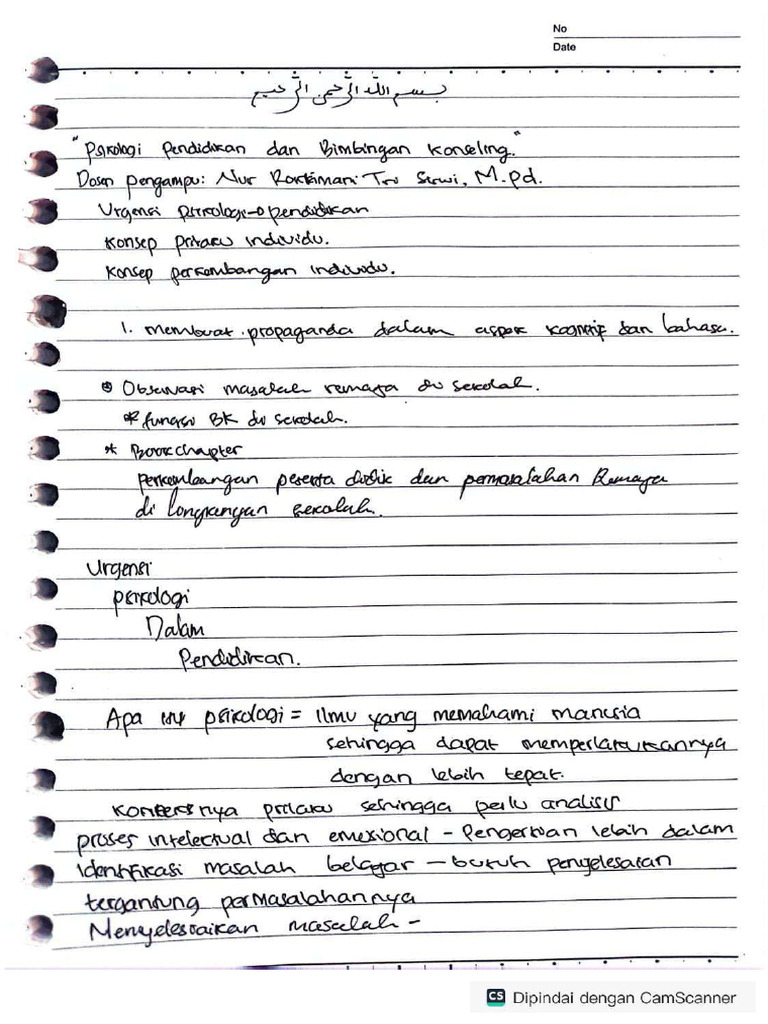 No
Date
بسم الله الرحمن الرحيم
"Psikologi Pendidikan dan Bimbingan Konseling."
Dosen pengampu: Nur Tri M.Pd.
Urgensi psikologi → pendidikan
Konsep prilaku individu.
Konsep perkembangan individu.
1. membuat propaganda dalam aspek kognitif dan bahasa.
Observasi masalah remaja di sekolah.
* fungsi BK di sekolah.
* Bookchapter
perkembangan peserta didik dan permasalahan Remaja
di sekolah.
Urgensi
psikologi
Dalam
Pendidikan.
Apa itu psikologi = Ilmu yang memahami manusia
sehingga dapat memperlakukannya
dengan lebih tepat.
prilaku sehingga perlu analisis
proses intelectual dan emosional - Pengertian lebih dalam
Identifikasi masalah belajar - butuh penyelesaian
tergantung permasalahannya
Menyelesaikan masalah -
CS Dipindai dengan CamScanner